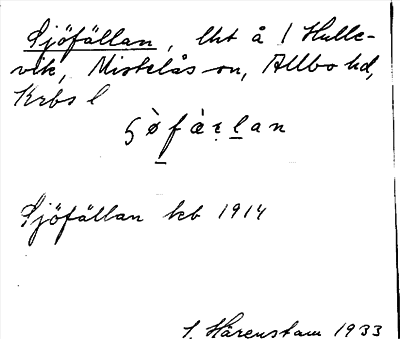 Sjöfällan, lht å 1 Hulle-
vik, Mistelås sn, Allbo hd,
Krbs l
Sjöfällan kb 1914
J. Härenstam 1933